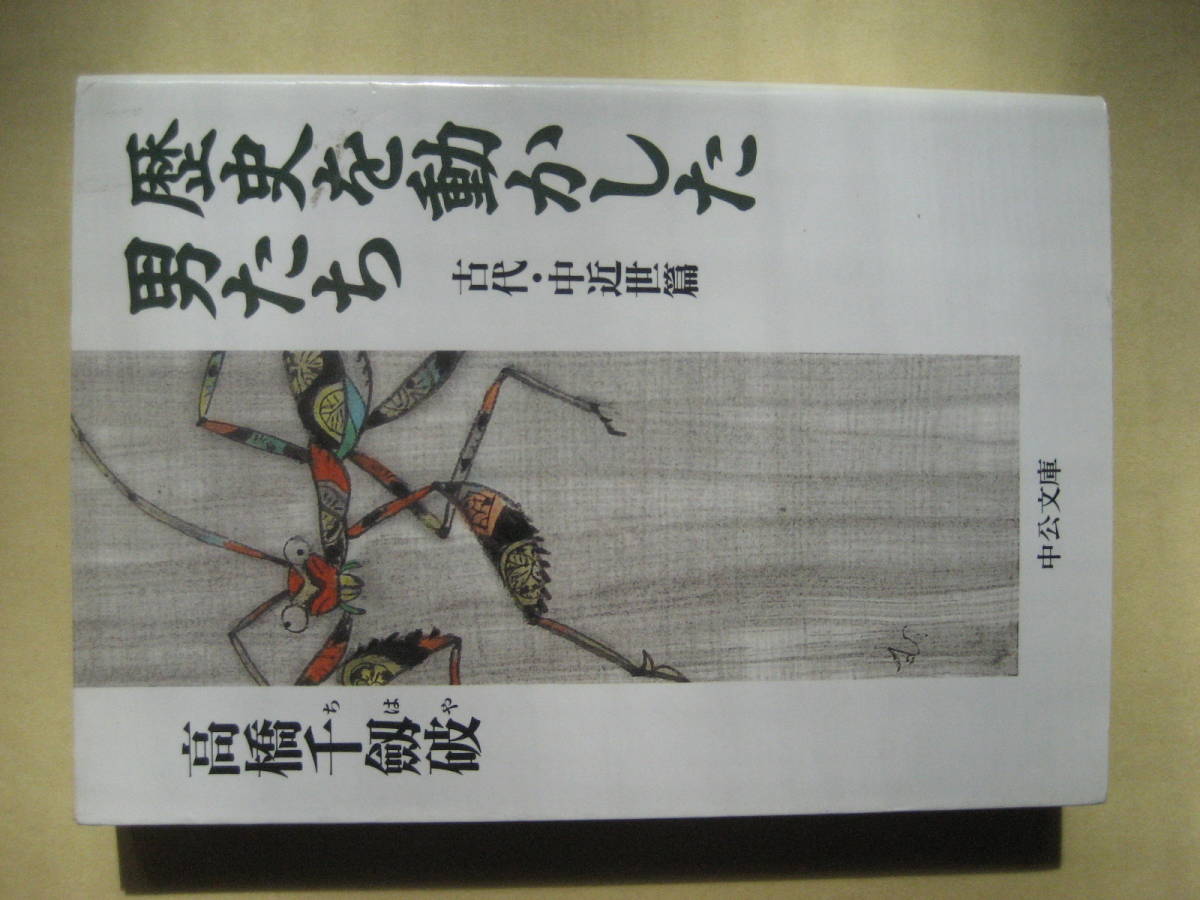 歴史を動かした
男たち
古代・中近世篇
高橋千劔破
ちはや
中公文庫